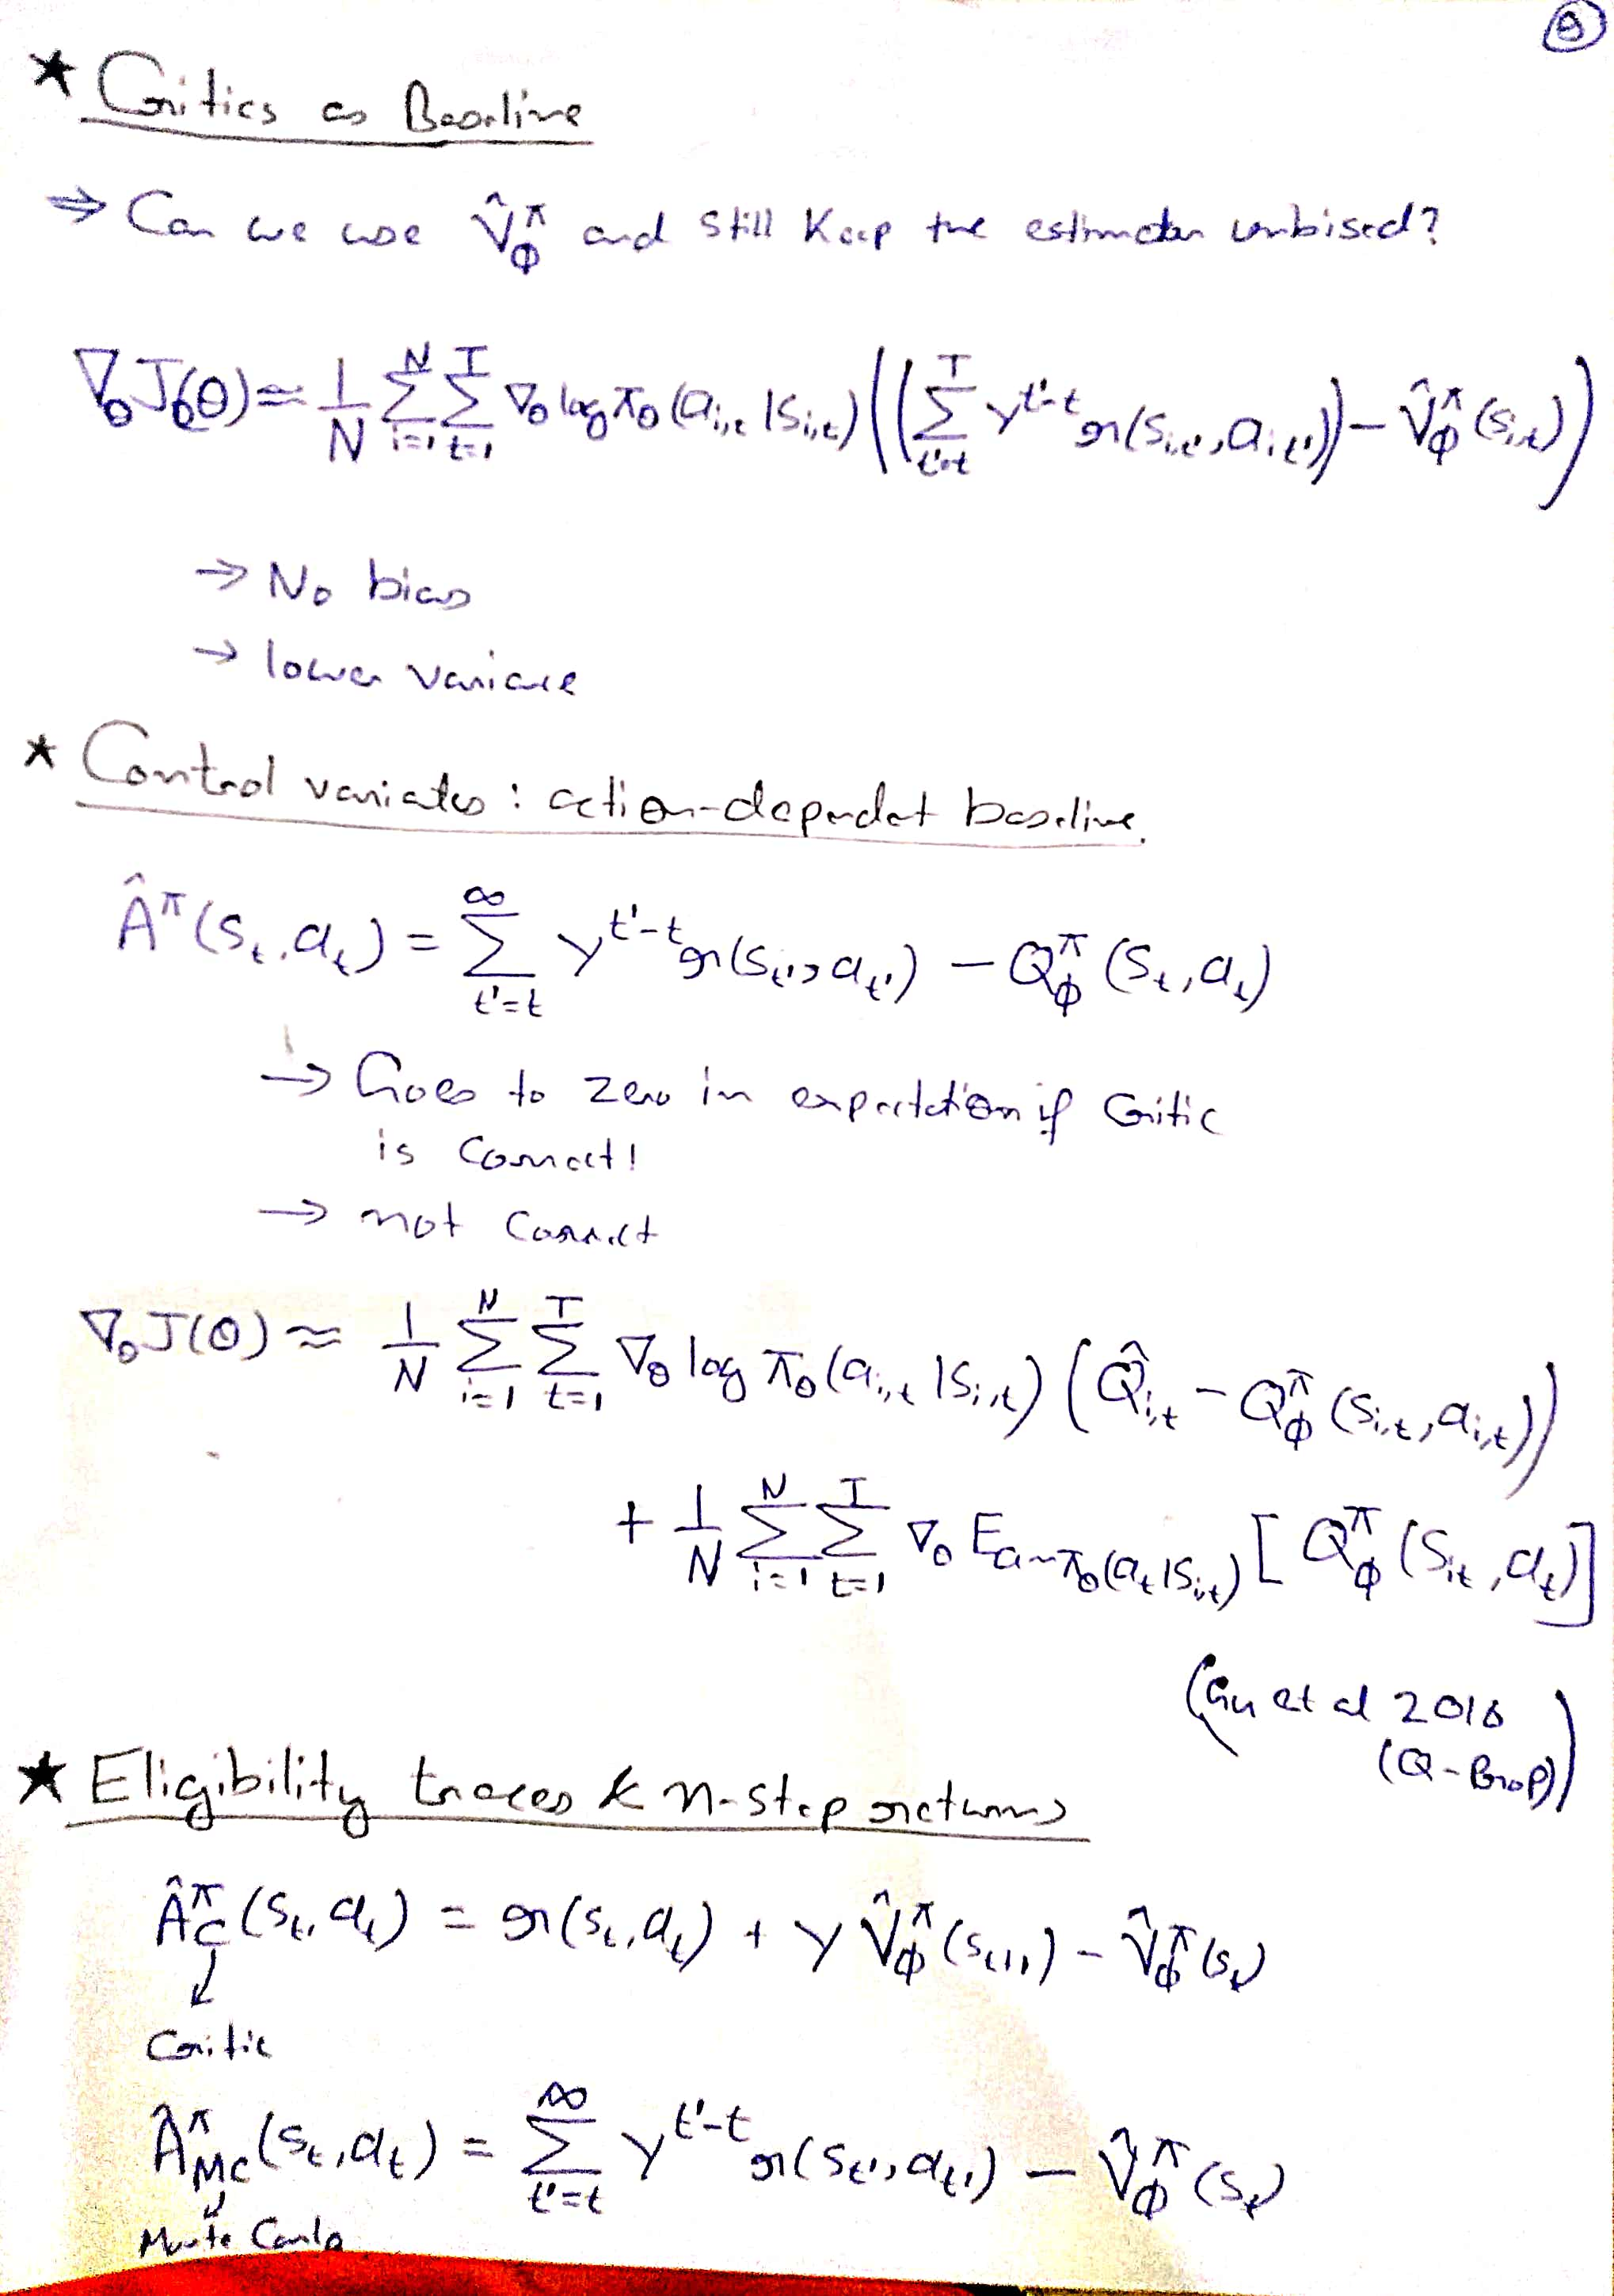 ⑧
★ Critics as Baseline
⇒ Can we use V̂^π_φ and still keep the estimator unbised?
∇_θ J(θ) ≈ 1/N Σ_{i=1}^{N} Σ_{t=1}^{T} ∇_θ log π_θ (a_{i,t} | s_{i,t}) ((Σ_{t'=t}^{T} γ^{t'-t} r(s_{i,t'}, a_{i,t'})) − V̂^π_φ (s_{i,t}))
→ No bias
→ lower variance
★ Control variates : action-dependent baseline.
Â^π (s_t, a_t) = Σ_{t'=t}^{∞} γ^{t'-t} r(s_{t'}, a_{t'}) − Q^π_φ (s_t, a_t)
→ Goes to zero in expectation if critic
is correct!
→ not correct
∇_θ J(θ) ≈ 1/N Σ_{i=1}^{N} Σ_{t=1}^{T} ∇_θ log π_θ (a_{i,t} | s_{i,t}) (Q̂_{i,t} − Q^π_φ (s_{i,t}, a_{i,t}))
+ 1/N Σ_{i=1}^{N} Σ_{t=1}^{T} ∇_θ E_{a∼π_θ(a_t|s_{i,t})} [Q^π_φ (s_{i,t}, a_t)]
(Gu et al 2016
(Q-Prop))
★ Eligibility traces & n-step returns
Â^π_C (s_t, a_t) = r(s_t, a_t) + γ V̂^π_φ (s_{t+1}) − V̂^π_φ (s_t)
Critic
Â^π_MC (s_t, a_t) = Σ_{t'=t}^{∞} γ^{t'-t} r(s_{t'}, a_{t'}) − V̂^π_φ (s_t)
Monte Carlo